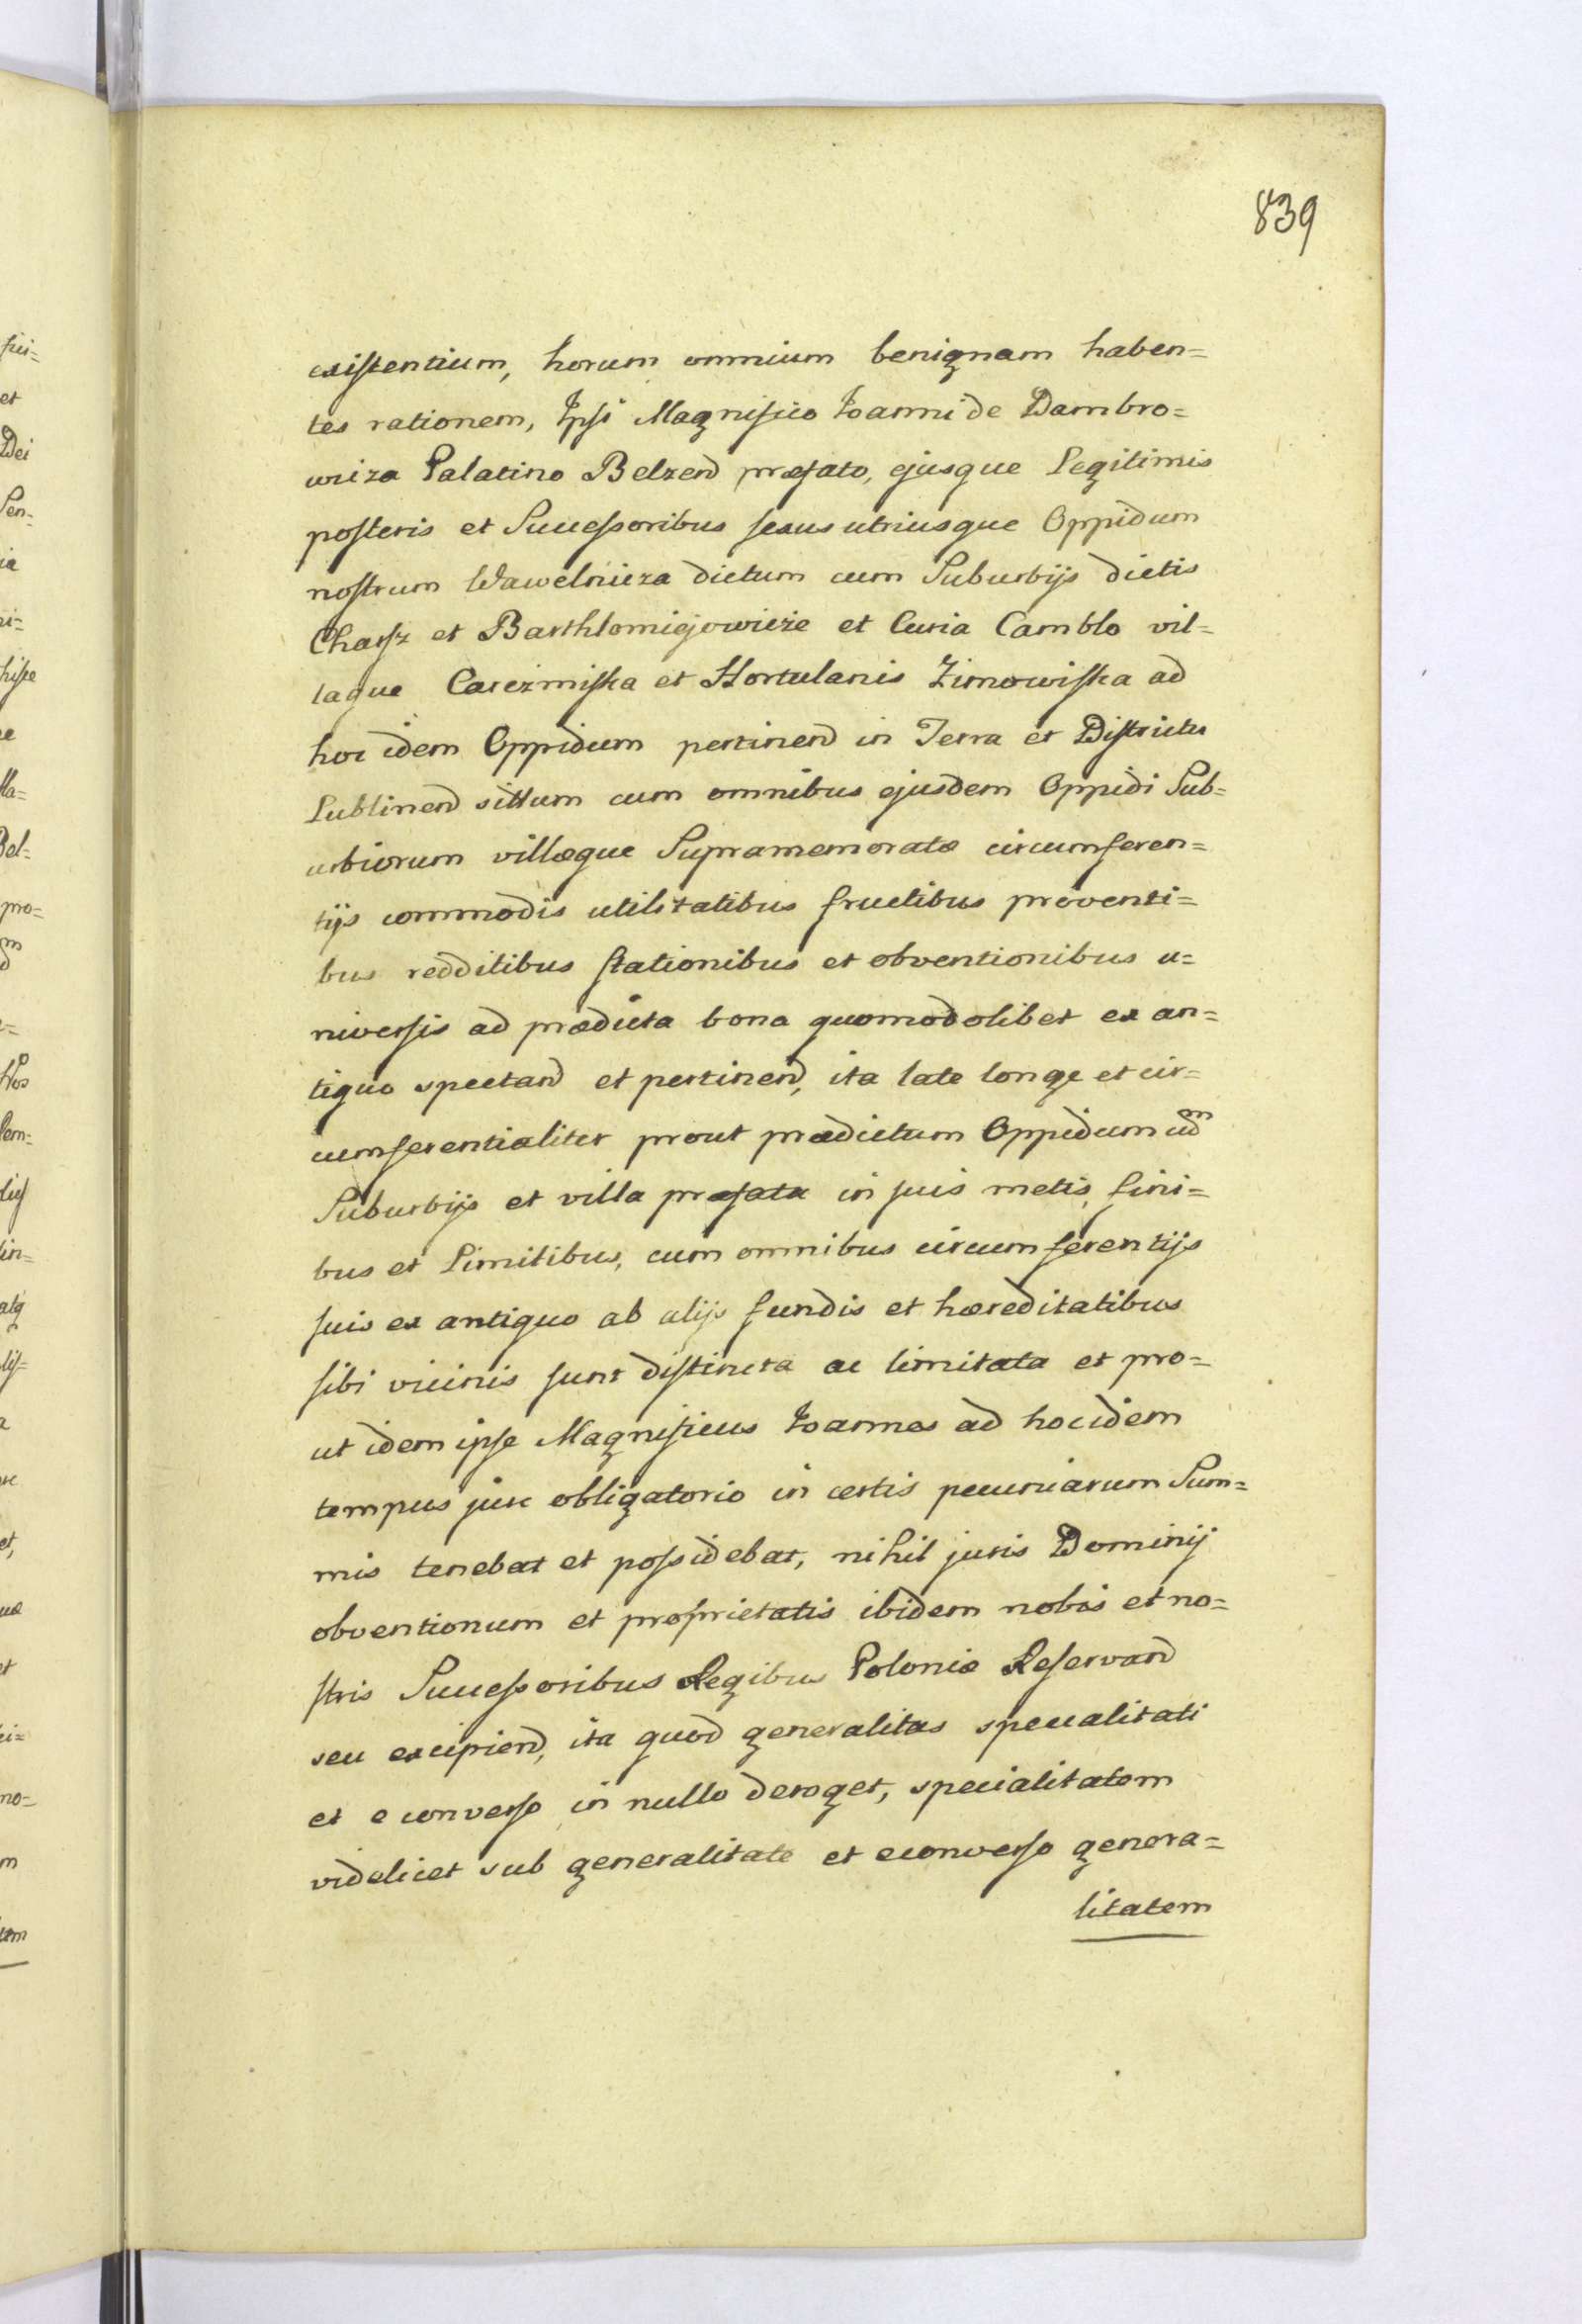 839
existentium, horum omnium benignam haben=
tes rationem, Ipsi Magnifico Ioanni de Dambro=
wiza Palatino Belzend præfato, ejusque Legitimis
posteris et Successoribus sexus utriusque Oppidum
nostrum Wawelnicza dictum cum Suburbijs dictis
Charsz et Barthlomiejowicze et Curia Camblo vil=
laque Carczmiska et Hortulanis Zimowiska ad
hoc idem Oppidum pertinend in Terra et Districtu
Lublinend sittum cum omnibus ejusdem Oppidi Sub=
urbiorum villæque Supramemoratæ circumferen=
tijs commodis utilitatibus fructibus proventi=
bus redditibus stationibus et obventionibus u=
niversis ad prædicta bona quomodolibet ex an=
tiquo spectand et pertinend, ita late longe et cir=
cumferentialiter prout prædictum Oppidum cum
Suburbijs et villa præfata in suis metis, fini=
bus et Limitibus, cum omnibus circumferentijs
suis ex antiquo ab alijs fundis et hæreditatibus
sibi vicinis sunt distincta ac limitata et pro=
ut idem ipse Magnificus Ioannes ad hocidem
tempus jure obligatorio in certis pecuniarum Sum=
mis tenebat et possidebat, nihil juris Dominij
obventionum et proprietatis ibidem nobis et no=
stris Successoribus Regibus Poloniæ Reservand
seu excipiend, ita quod generalitas specialitati
et e converso in nullo deroget, specialitatem
videlicet sub generalitate et econverso genera=
litatem